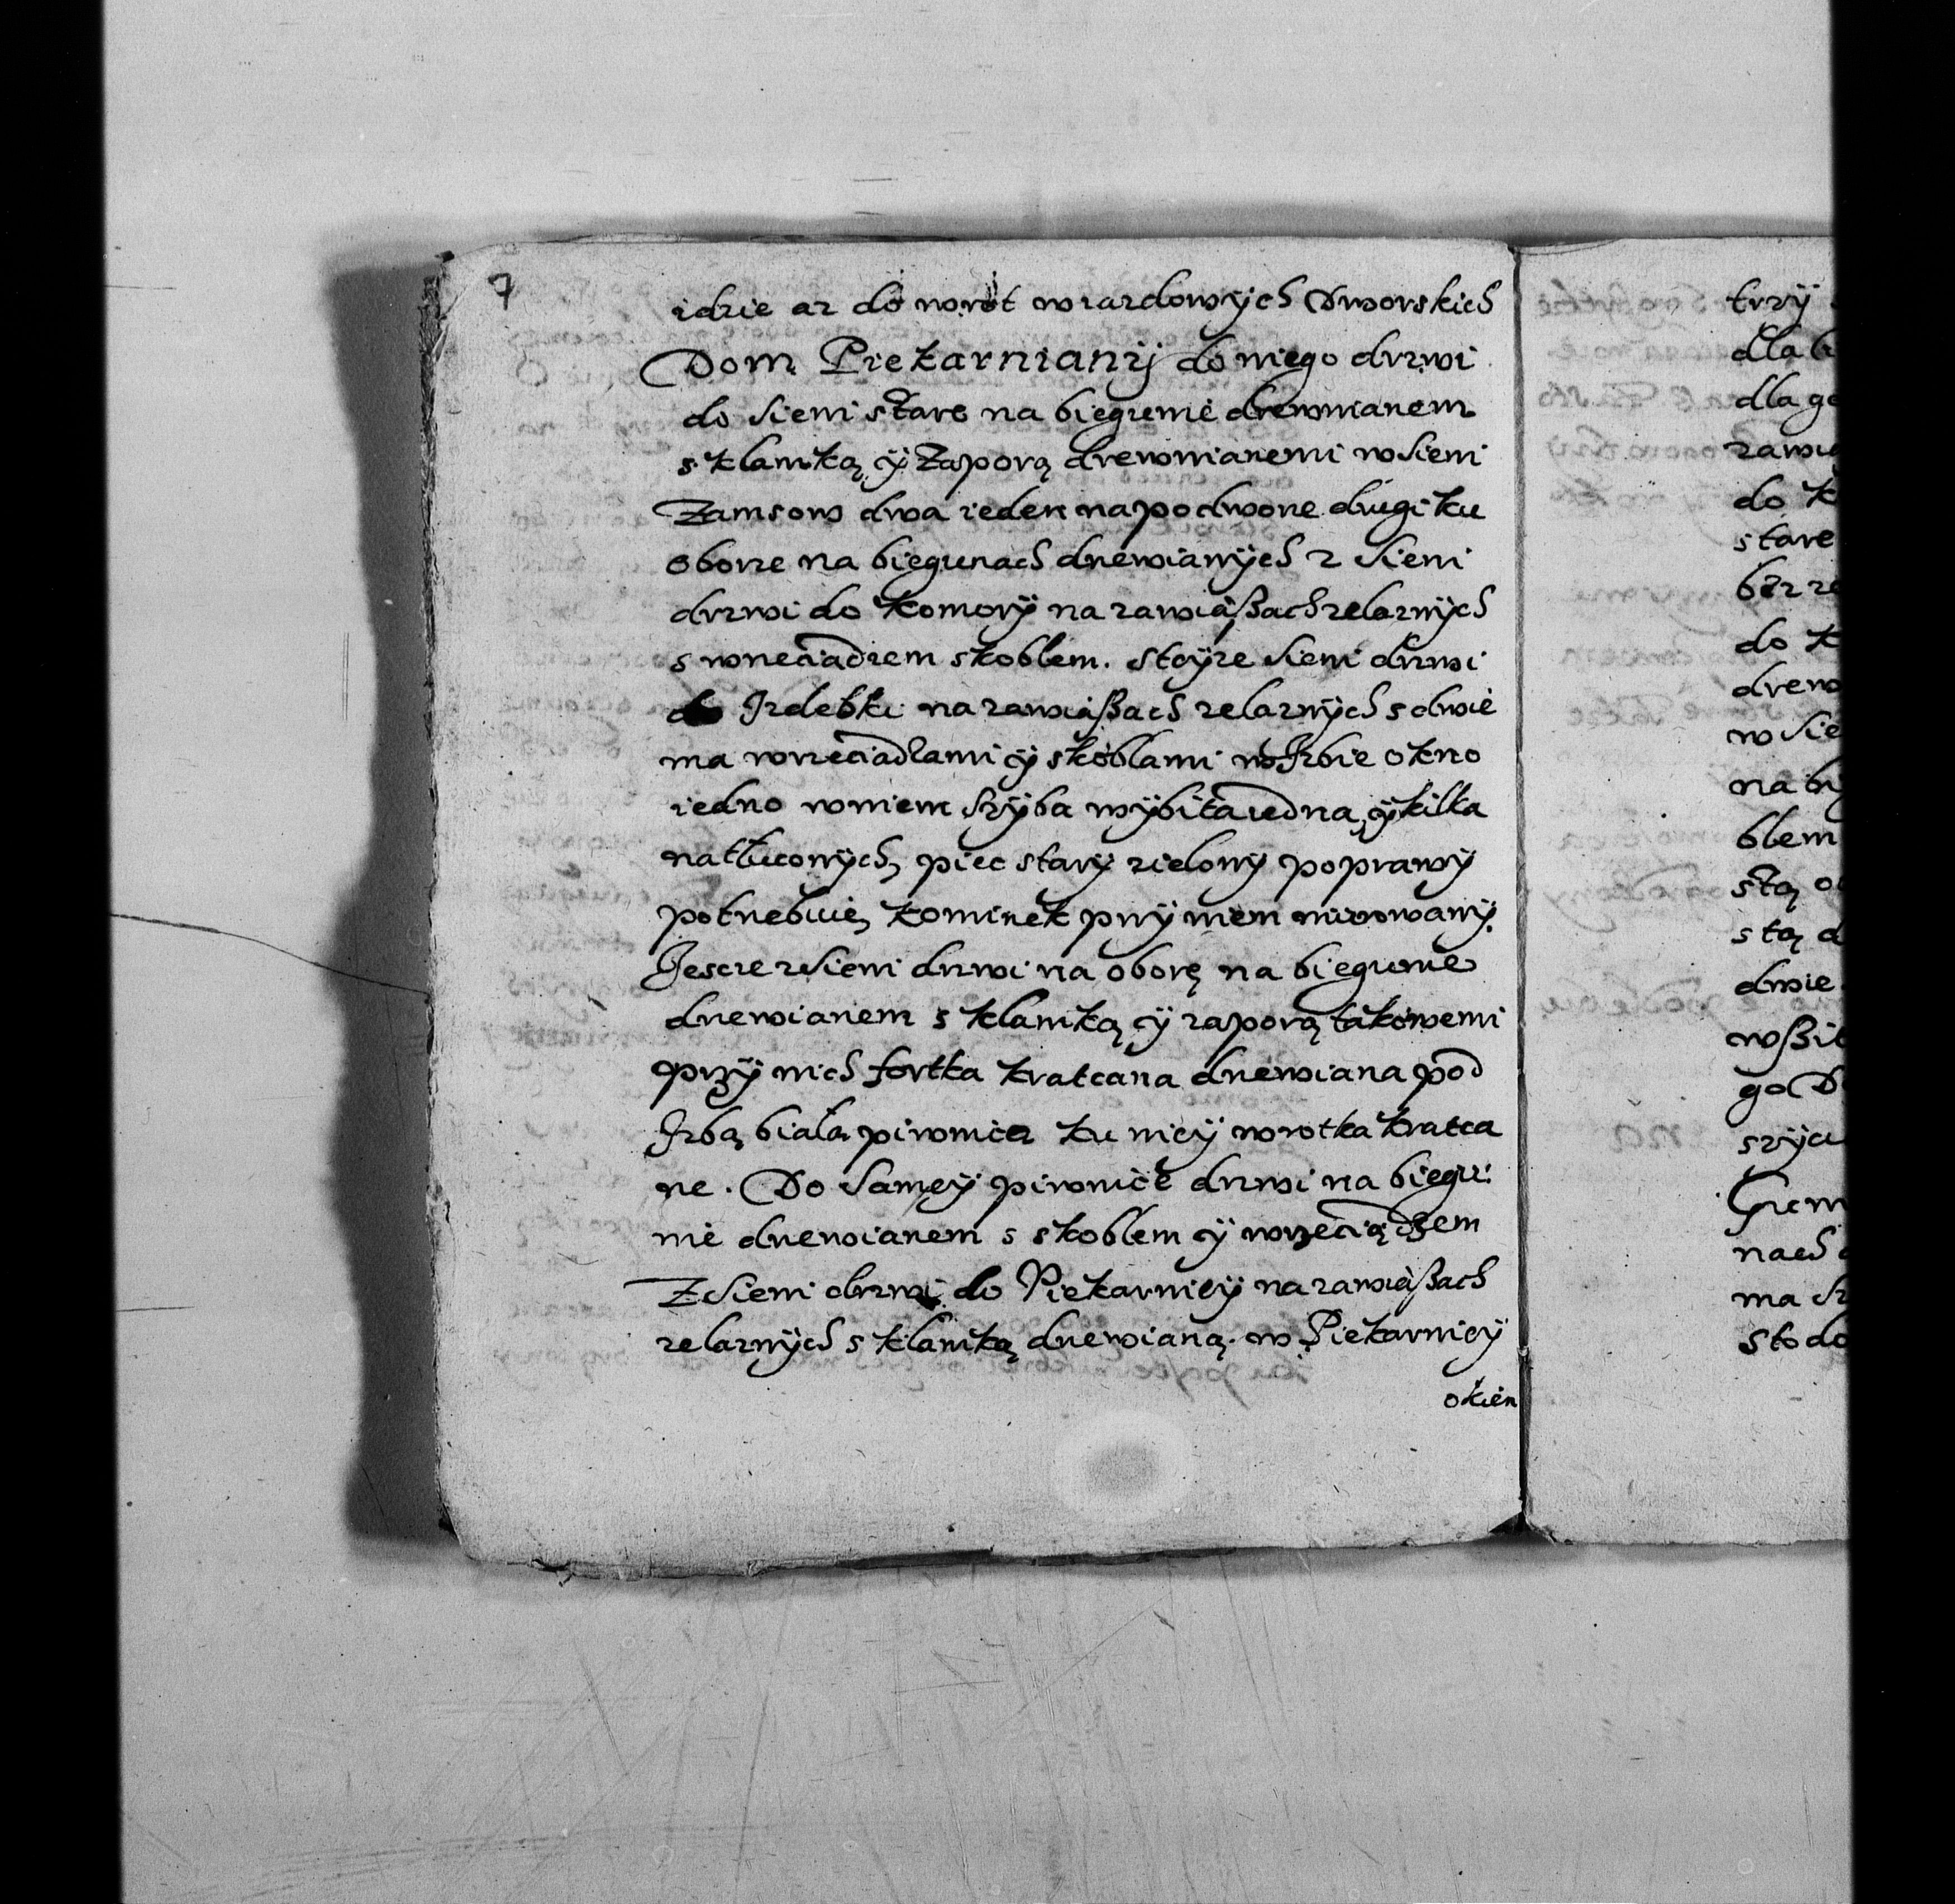 7
idzie az do wrót wiazdowych Dworskich
Dom Piekarniany do niego drzwi
do sieni stare na biegunie drewnianem
s klamką y Zaporą drewnianemi w sieni
Zamsow dwa ieden na podworze drugi ku
oborze na biegunach drzewianych z sieni
drzwi do komory na zawiaßach zelaznych
s wrzeciadzem skoblem. s tey ze sieni drzwi
do Izdebki na zawiaßach zelaznych s dwie
ma wrzeciadzami y skoblami w Izbie okno
iedno w niem szyba wybita iedna, y kilka
natłuconych, piec stary zielony poprawy
potrzebuie, kominek przy niem murowany.
Jescze z sieni drzwi na oborę na biegunie
drzewianem s klamką y zaporą takowemi
przy nich fortka kratcana drzewiana pod
Izbą białą piwnica ku niey wrotka kratca
ne. Do samey piwnice drzwi na biegu:
nie drzewianem s skoblem y wrzeciądzem
Z sieni drzwi do Piekarniey na zawiaßach
zelaznych s klamką drzewianą. w Piekarniey
okien
trzy
dla
dla
do
stare
do
na
blem
stą
stą
dwie
go
ma